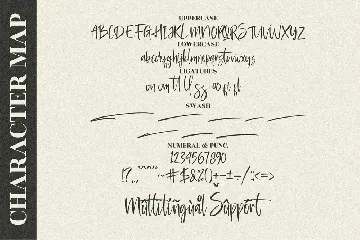 CHARACTER MAP
UPPERCASE
ABCDEFGHIJKLMNOPQRSTUVWXYZ
LOWERCASE
abcdefghijklmnopqrstuvwxyz
LIGATURES
SWASH
NUMERAL & PUNC.
1234567890
Multilingual Support